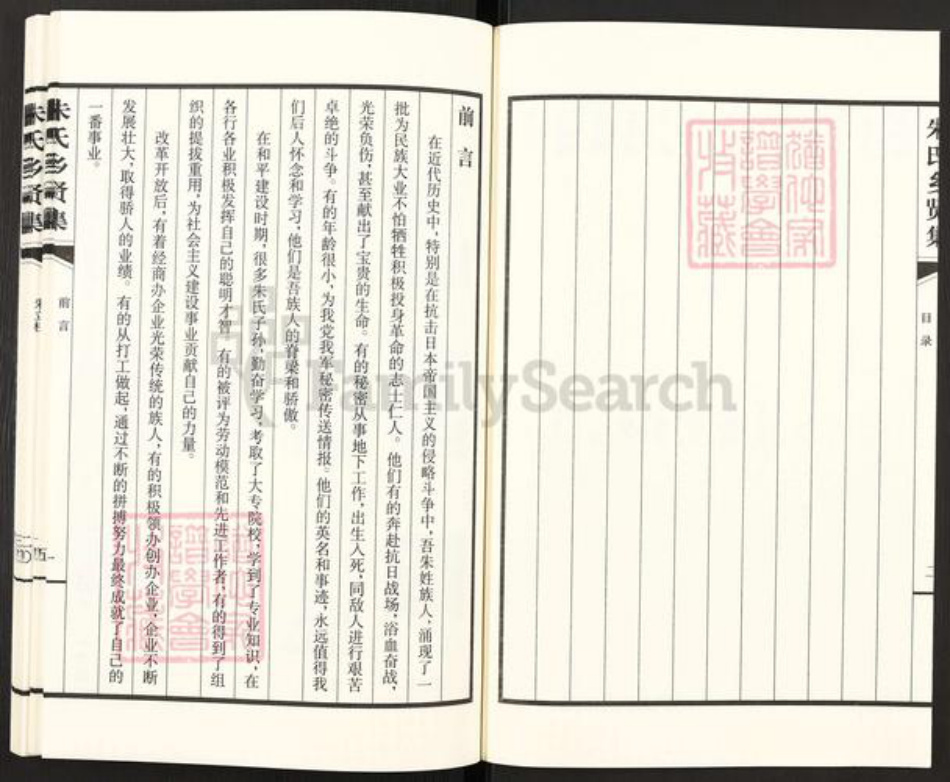 朱氏乡贤集
目录
二
前言
在近代历史中，特别是在抗击日本帝国主义的侵略斗争中，吾朱姓族人，涌现了一
批为民族大业不怕牺牲积极投身革命的志士仁人。他们有的奔赴抗日战场，浴血奋战，
光荣负伤，甚至献出了宝贵的生命。有的秘密从事地下工作，出生入死，同敌人进行艰苦
卓绝的斗争。有的年龄很小，为我党我军秘密传送情报。他们的英名和事迹，永远值得我
们后人怀念和学习，他们是吾族人的脊梁和骄傲。
在和平建设时期，很多朱氏子孙，勤奋学习，考取了大专院校，学到了专业知识，在
各行各业积极发挥自己的聪明才智，有的被评为劳动模范和先进工作者，有的得到了组
织的提拔重用，为社会主义建设事业贡献自己的力量。
改革开放后，有着经商办企业光荣传统的族人，有的积极领办创办企业，企业不断
发展壮大，取得骄人的业绩。有的从打工做起，通过不断的拼搏努力最终成就了自己的
一番事业。
朱氏乡贤集
前言
一
朱氏乡贤集
FamilySearch